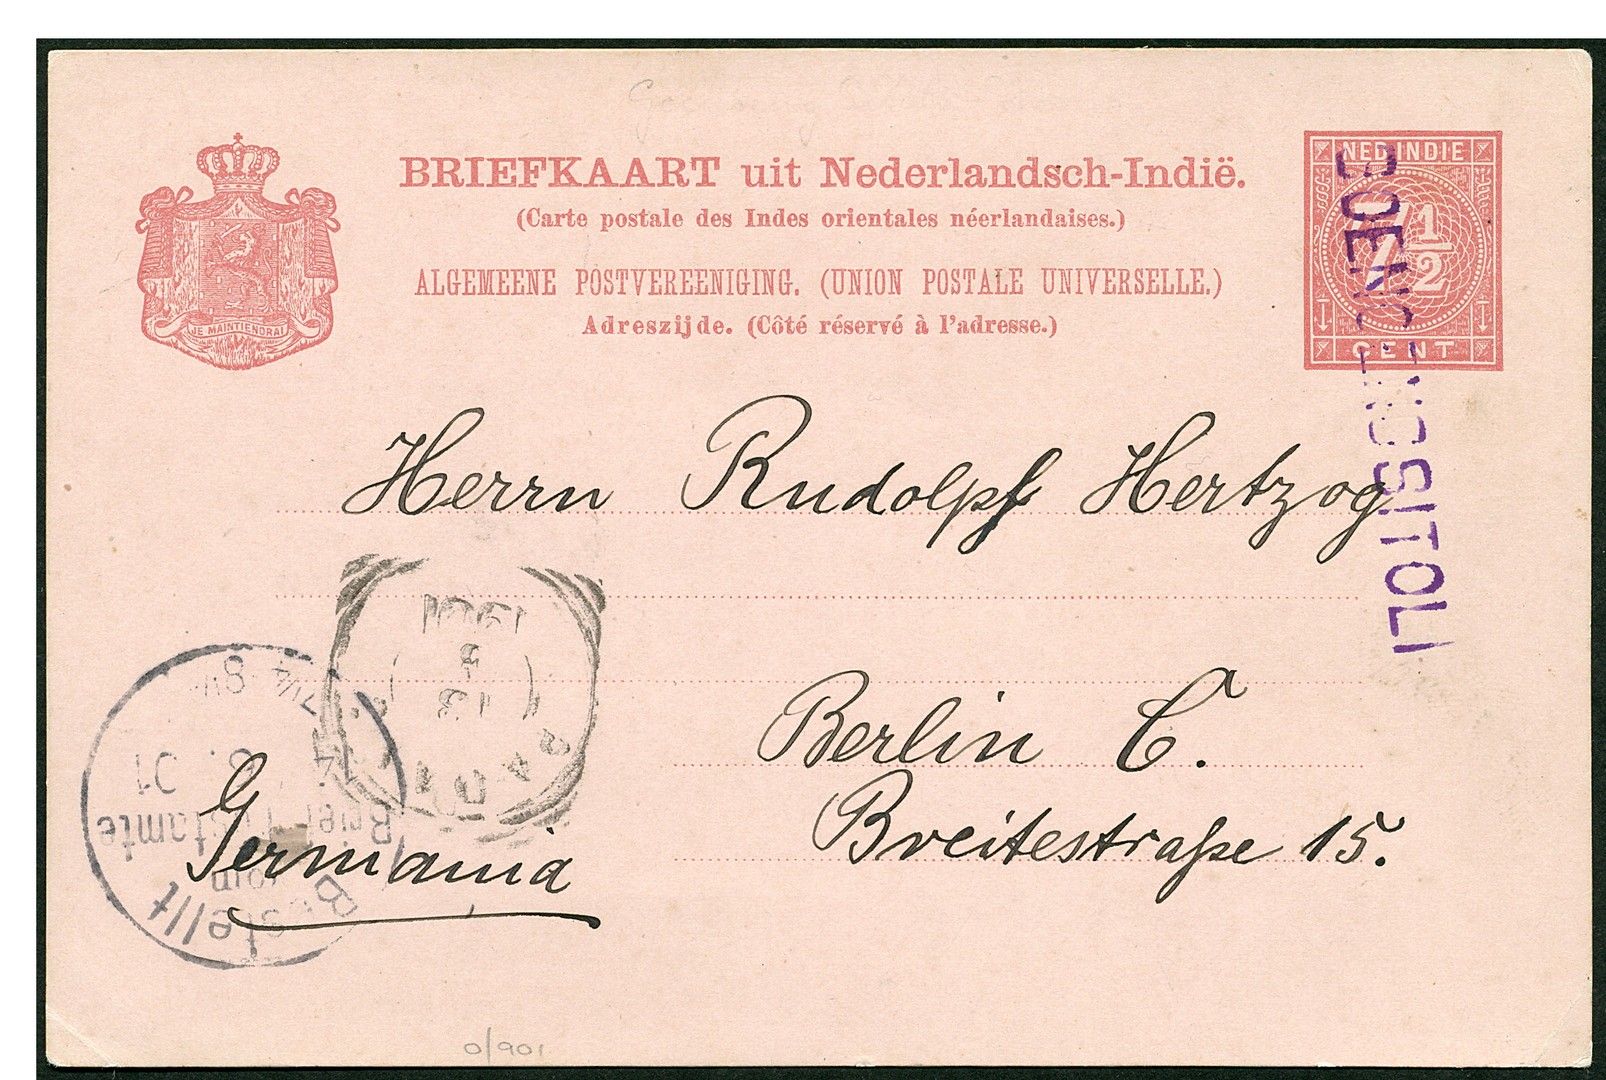 BRIEFKAART uit Nederlandsch-Indië.
(Carte postale des Indes orientales néerlandaises.)
ALGEMEENE POSTVEREENIGING. (UNION POSTALE UNIVERSELLE.)
Adreszijde. (Côté réservé à l'adresse.)
JE MAINTIENDRAI
NED INDIE
7 1/2
CENT
GOENOENGSITOLI
Herrn Rudolph Hertzog
Berlin C.
Breitestraße 15.
Germania
PADANG
1901
Bestellt
Postamte
01
0/901